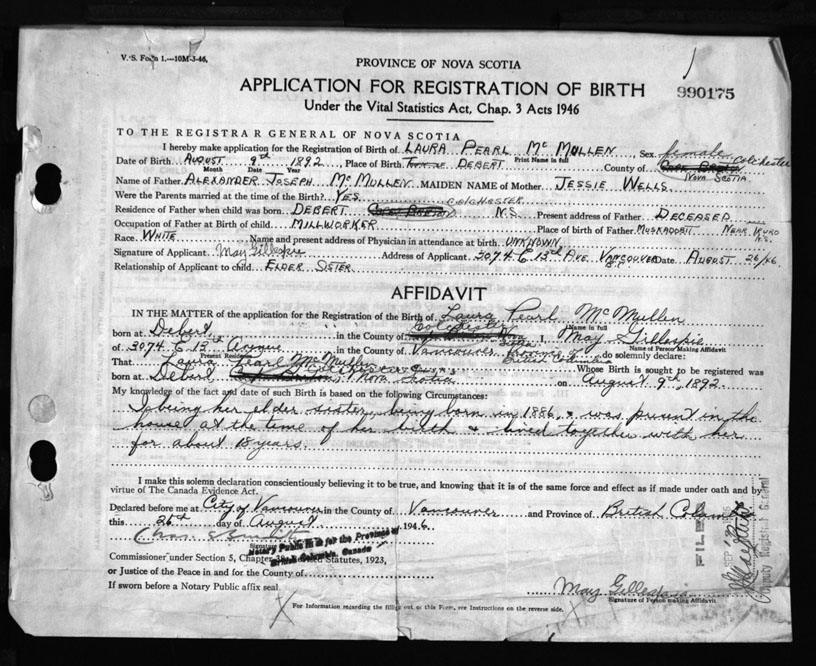 V. S. Form 1.—10M-3-46.
PROVINCE OF NOVA SCOTIA
APPLICATION FOR REGISTRATION OF BIRTH
990175
Under the Vital Statistics Act, Chap. 3 Acts 1946
TO THE REGISTRAR GENERAL OF NOVA SCOTIA
I hereby make application for the Registration of Birth of LAURA PEARL McMULLEN, Sex female
Print Name in full
Colchester
Date of Birth AUGUST 9th 1892 Place of Birth DEBERT County of CAPE BRETON
Month Day Year NOVA SCOTIA
Name of Father ALEXANDER JOSEPH McMULLEN MAIDEN NAME of Mother JESSIE WELLS
Were the Parents married at the time of the Birth? YES
COLCHESTER
Residence of Father when child was born DEBERT CAPE BRETON N.S. Present address of Father DECEASED
Occupation of Father at Birth of child MILLWORKER Place of birth of Father MUSKADOBIT NEAR TRURO N.S.
Race WHITE Name and present address of Physician in attendance at birth UNKNOWN
Signature of Applicant May Gillespie Address of Applicant 3074 E 13th AVE VANCOUVER B.C. Date AUGUST 26/46
Relationship of Applicant to child ELDER SISTER
AFFIDAVIT
IN THE MATTER of the application for the Registration of the Birth of Laura Pearl McMullen
Name in full
Colchester
born at Debert in the County of I, May Gillespie
Name of Person Making Affidavit
of 3074 E 13th Avenue in the County of Vancouver British Columbia do solemnly declare:
Present Residence
That Laura Pearl McMullen Whose Birth is sought to be registered was
COLCHESTER
born at Debert Cape Breton, Nova Scotia on August 9th, 1892.
My knowledge of the fact and date of such Birth is based on the following Circumstances:
I being her elder sister, being born in 1886, & was present in the
house at the time of her birth & lived together with her
for about 18 years.
I make this solemn declaration conscientiously believing it to be true, and knowing that it is of the same force and effect as if made under oath and by
virtue of The Canada Evidence Act.
Declared before me at City of Vancouver in the County of Vancouver and Province of British Columbia
this 26th day of August 1946
Notary Public in & for the Province of
British Columbia, Canada
Commissioner under Section 5, Chapter Statutes, 1923,
or Justice of the Peace in and for the County of
If sworn before a Notary Public affix seal.
May Gillespie
Signature of Person making Affidavit
For Information regarding the filling out of this Form, see Instructions on the reverse side.
FILED
SEP
Deputy Registrar General